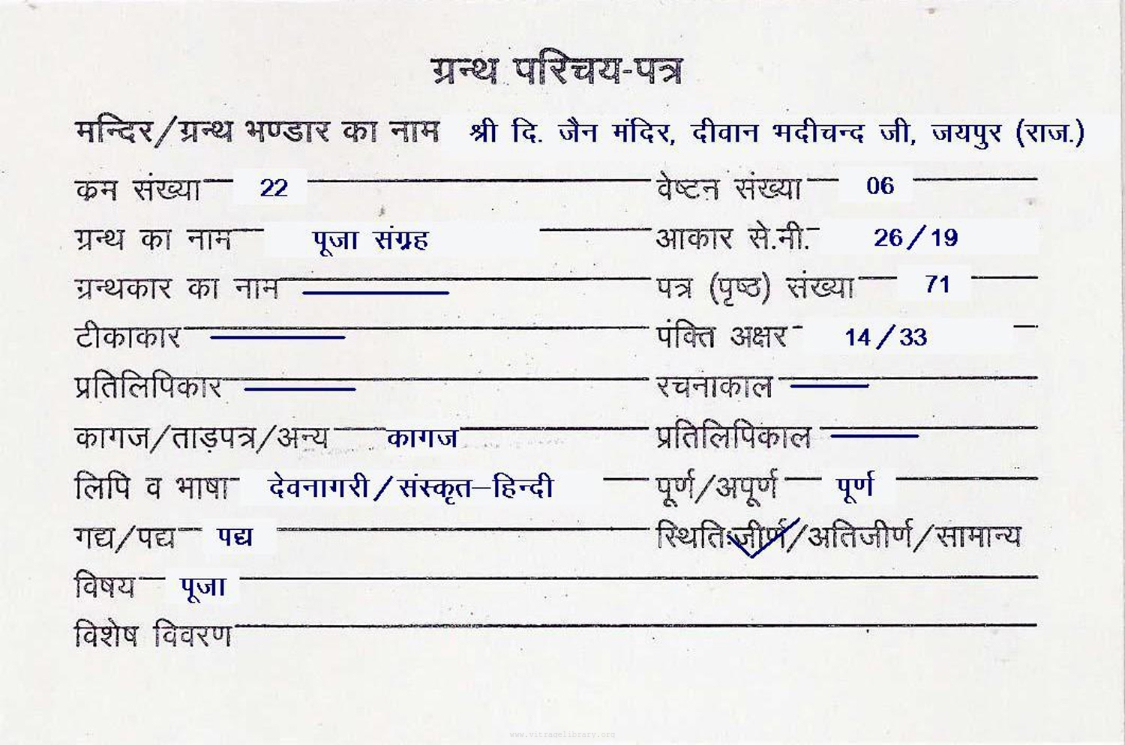 ग्रन्थ परिचय-पत्र
मन्दिर/ग्रन्थ भण्डार का नाम श्री दि. जैन मंदिर, दीवान भदीचन्द जी, जयपुर (राज.)
क्रम संख्या 22 वेष्टन संख्या 06
ग्रन्थ का नाम पूजा संग्रह आकार से.मी. 26/19
ग्रन्थकार का नाम पत्र (पृष्ठ) संख्या 71
टीकाकार पंक्ति अक्षर 14/33
प्रतिलिपिकार रचनाकाल
कागज/ताड़पत्र/अन्य कागज प्रतिलिपिकाल
लिपि व भाषा देवनागरी/संस्कृत–हिन्दी पूर्ण/अपूर्ण पूर्ण
गद्य/पद्य पद्य स्थितिःजीर्ण/अतिजीर्ण/सामान्य
विषय पूजा
विशेष विवरण